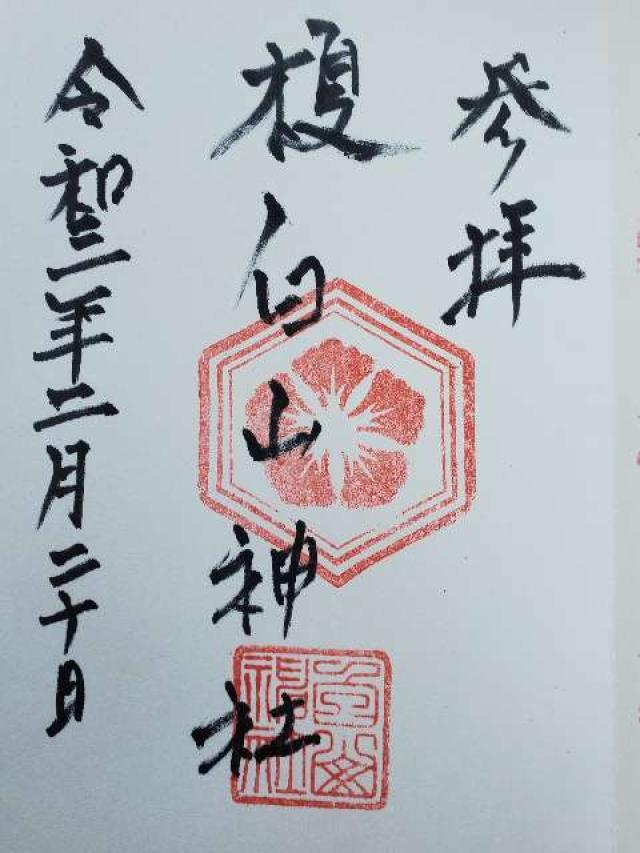 参拝
榎白山神社
令和二年二月二十日
白山
神社